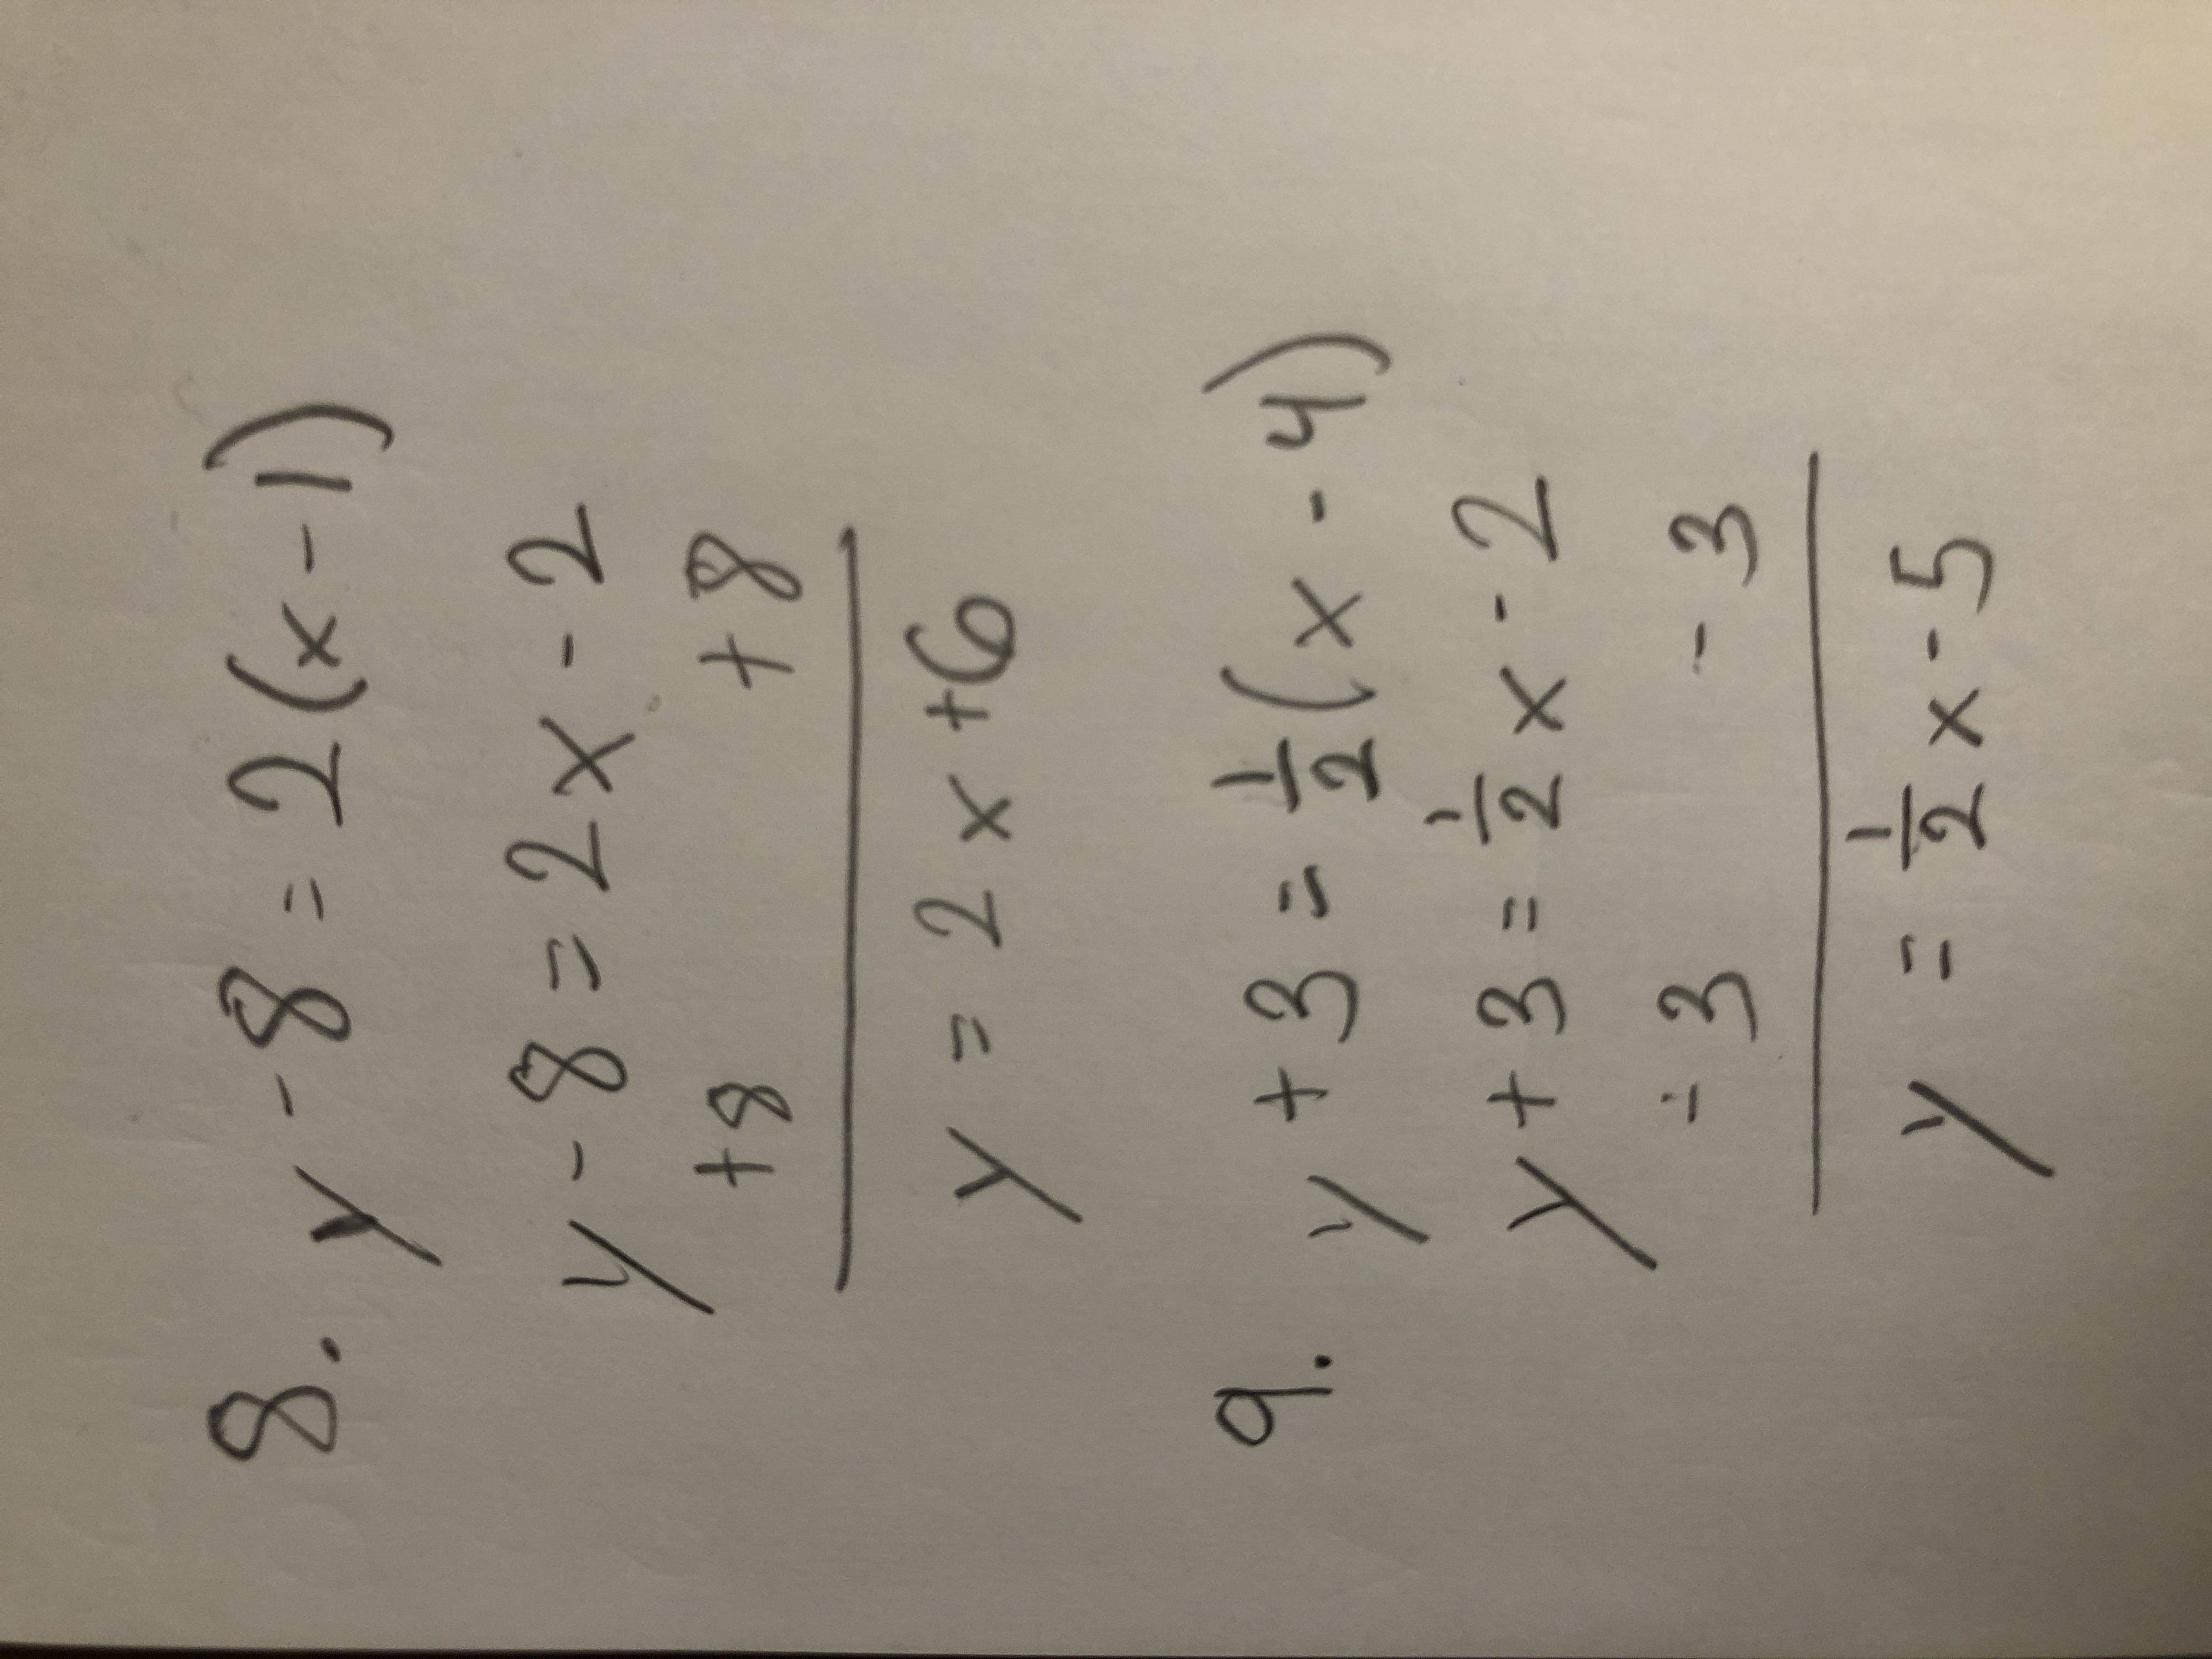 8. y - 8 = 2(x - 1)
y - 8 = 2x - 2
+8 +8
y = 2x +6
9. y + 3 = 1/2(x - 4)
y + 3 = 1/2x - 2
- 3 - 3
y = 1/2x - 5